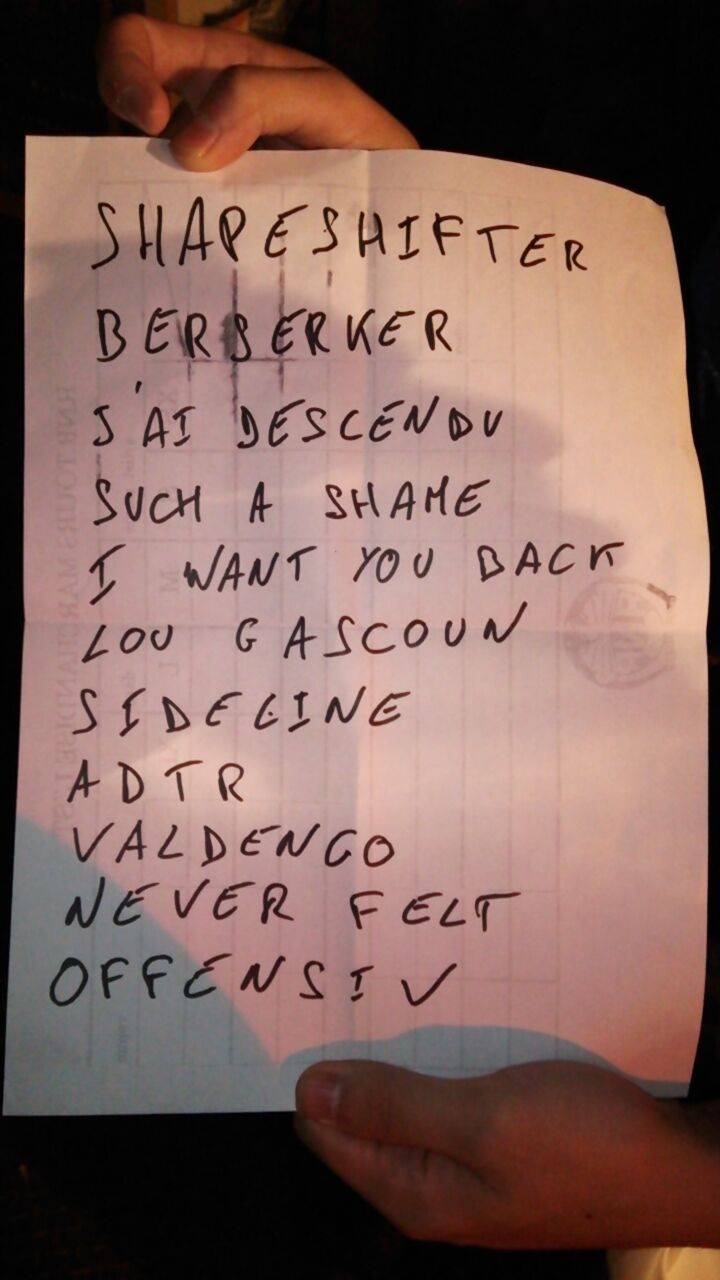 SHAPESHIFTER
BERSERKER
J'AI DESCENDU
SUCH A SHAME
I WANT YOU BACK
LOU GASCOUN
SIDELINE
ADTR
VALDENGO
NEVER FELT
OFFENSIV
RNB TOURS MARCHANDISE